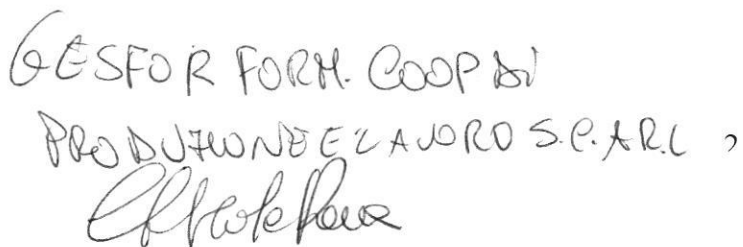 GESFOR FORM. COOP DI
PRODUZIONE E LAVORO S.C.A.R.L ,